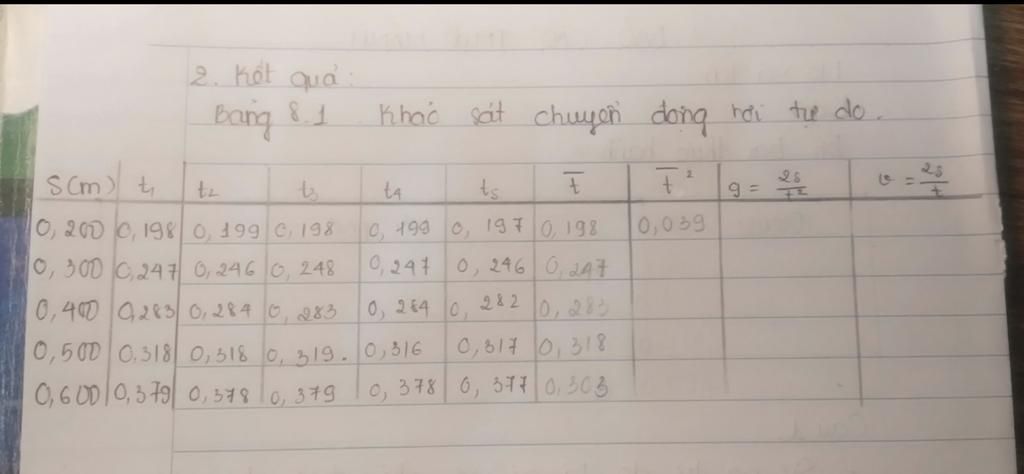 2. Kết quả:
Bảng 8.1 Khảo sát chuyển động rơi tự do.
S(m) t₁ t₂ t₃ t₄ t₅ t̅ t̅² g = 2s/t² v = 2s/t
0,200 0,198 0,199 0,198 0,199 0,197 0,198 0,039
0,300 0,247 0,246 0,248 0,247 0,246 0,247
0,400 0,283 0,284 0,283 0,284 0,282 0,283
0,500 0.318 0,318 0,319. 0,316 0,317 0,318
0,600 0,379 0,378 0,379 0,378 0,377 0,303